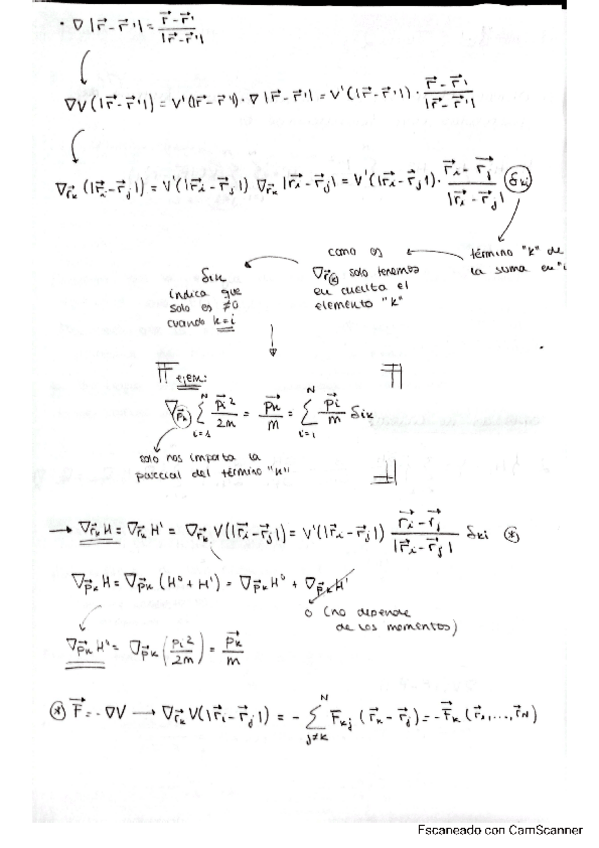 · ∇ |r⃗ - r⃗'| = (r⃗ - r⃗') / |r⃗ - r⃗'|
∇V(|r⃗ - r⃗'|) = V'(|r⃗ - r⃗'|) · ∇|r⃗ - r⃗'| = V'(|r⃗ - r⃗'|) · (r⃗ - r⃗') / |r⃗ - r⃗'|
∇r⃗k (|r⃗i - r⃗j|) = V'(|r⃗i - r⃗j|) ∇r⃗k |r⃗i - r⃗j| = V'(|r⃗i - r⃗j|) · (r⃗i - r⃗j) / |r⃗i - r⃗j| δki
término "k" de
la suma en "i
como es
∇r⃗k solo tenemos
en cuenta el
elemento "k"
δik
indica que
solo es ≠0
cuando k=i
ejem:
∇p⃗k ∑_{i=1}^{N} p⃗i² / 2m = p⃗k / m = ∑_{i=1}^{N} p⃗i / m δik
solo nos importa la
parcial del término "k"
→ ∇r⃗k H = ∇r⃗k H' = ∇r⃗k V(|r⃗i - r⃗j|) = V'(|r⃗i - r⃗j|) (r⃗i - r⃗j) / |r⃗i - r⃗j| δki (*)
∇p⃗k H = ∇p⃗k (H⁰ + H') = ∇p⃗k H⁰ + ∇p⃗k H'
0 (no depende
de los momentos)
∇p⃗k H⁰ = ∇p⃗k (pi² / 2m) = p⃗k / m
(*) F⃗ = -∇V → ∇r⃗k V(|r⃗i - r⃗j|) = - ∑_{j≠k}^{N} F⃗kj (r⃗k - r⃗j) = -F⃗k (r⃗1, ..., r⃗N)
Escaneado con CamScanner